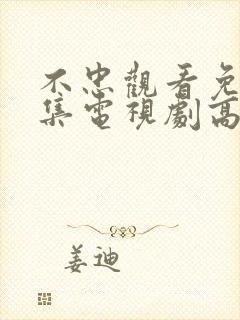 不忠觀看免
集電視劇高
姜迪